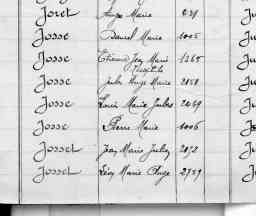 Joret Ange Marie 231
Josse Daniel Marie 1005
Josse Etienne Jean Marie 1365
Josse Jules Ange Marie 2058
Josse Louis Marie Jules 2049
Josse Pierre Marie 1006
Josset Jean Marie Julien 2072
Josset Léon Marie Ange 2759